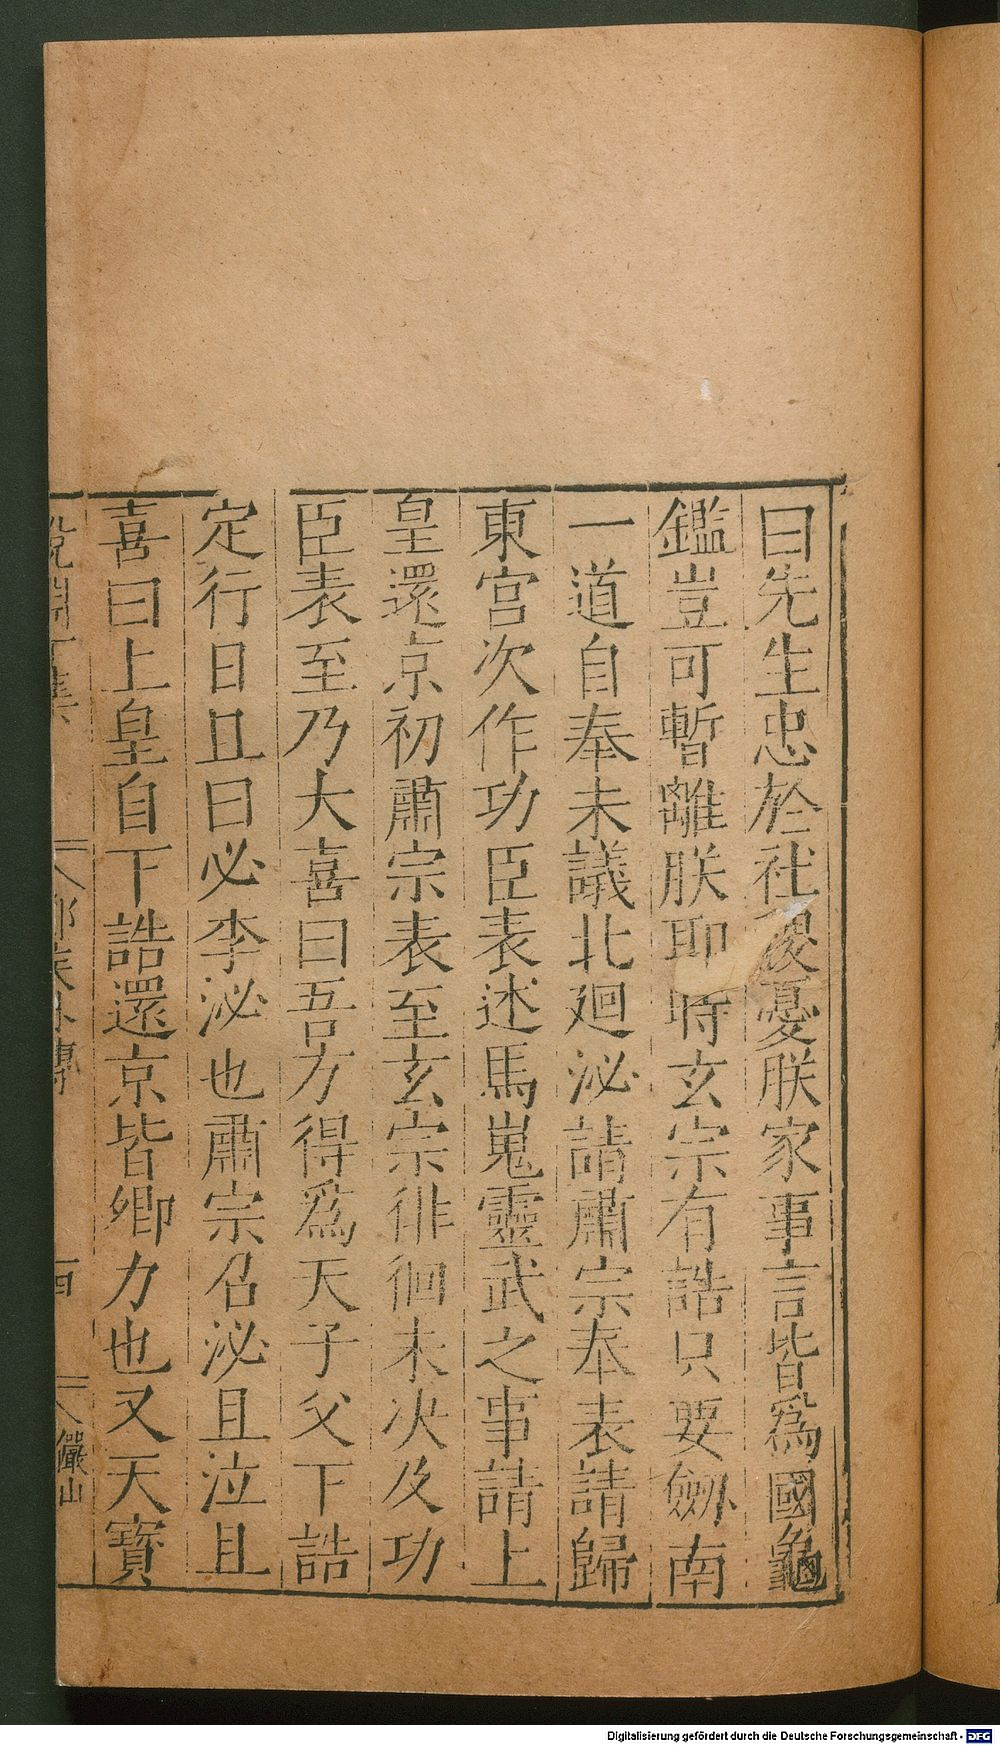 曰先生忠於社稷憂朕家事言皆爲國龜
鑑豈可暫離朕耶時玄宗有誥只要劒南
一道自奉未議北廻泌請肅宗奉表請歸
東宮次作功臣表述馬嵬靈武之事請上
皇還京初肅宗表至玄宗徘徊未决及功
臣表至乃大喜曰吾方得爲天子父下誥
定行日且曰必李泌也肅宗召泌且泣且
喜曰上皇自下誥還京皆卿力也又天寶
說淵丁集 鄴侯外傳 百 儼山
Digitalisierung gefördert durch die Deutsche Forschungsgemeinschaft - DFG